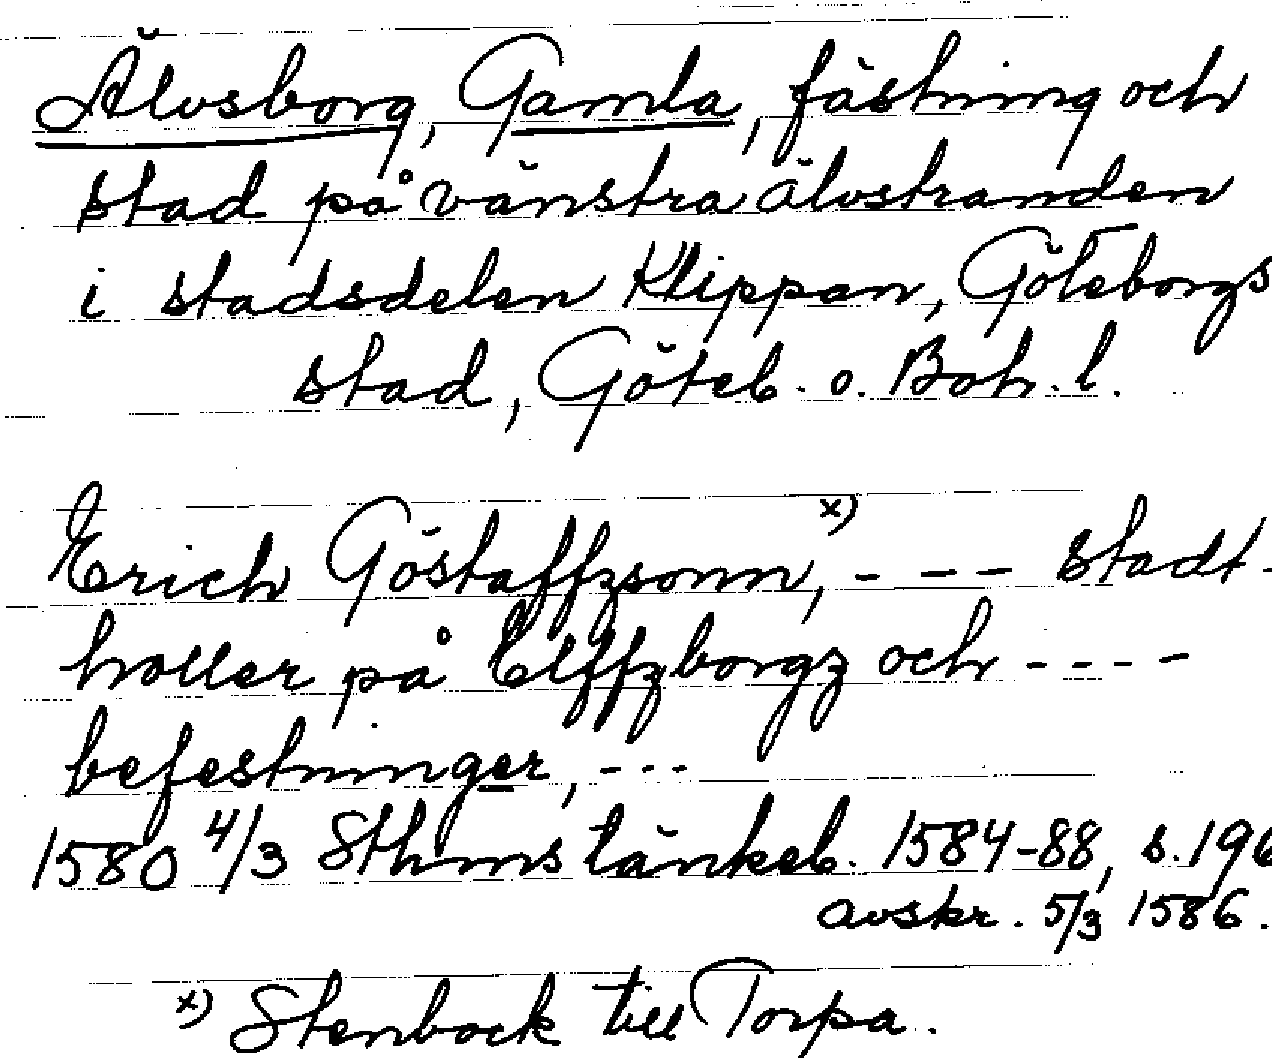 Älvsborg, Gamla, fästning och
stad på vänstra älvstranden
i stadsdelen Klippan, Göteborgs
stad, Göteb. o. Boh. l.
Erich Göstaffzsonn, x) - - - stadt-
holler på Elffzborgz och - - - -
befestninger, - - -
1580 4/3 Sthms tänkeb. 1584-88, s. 196
avskr. 5/3 1586.
x) Stenbock till Torpa.